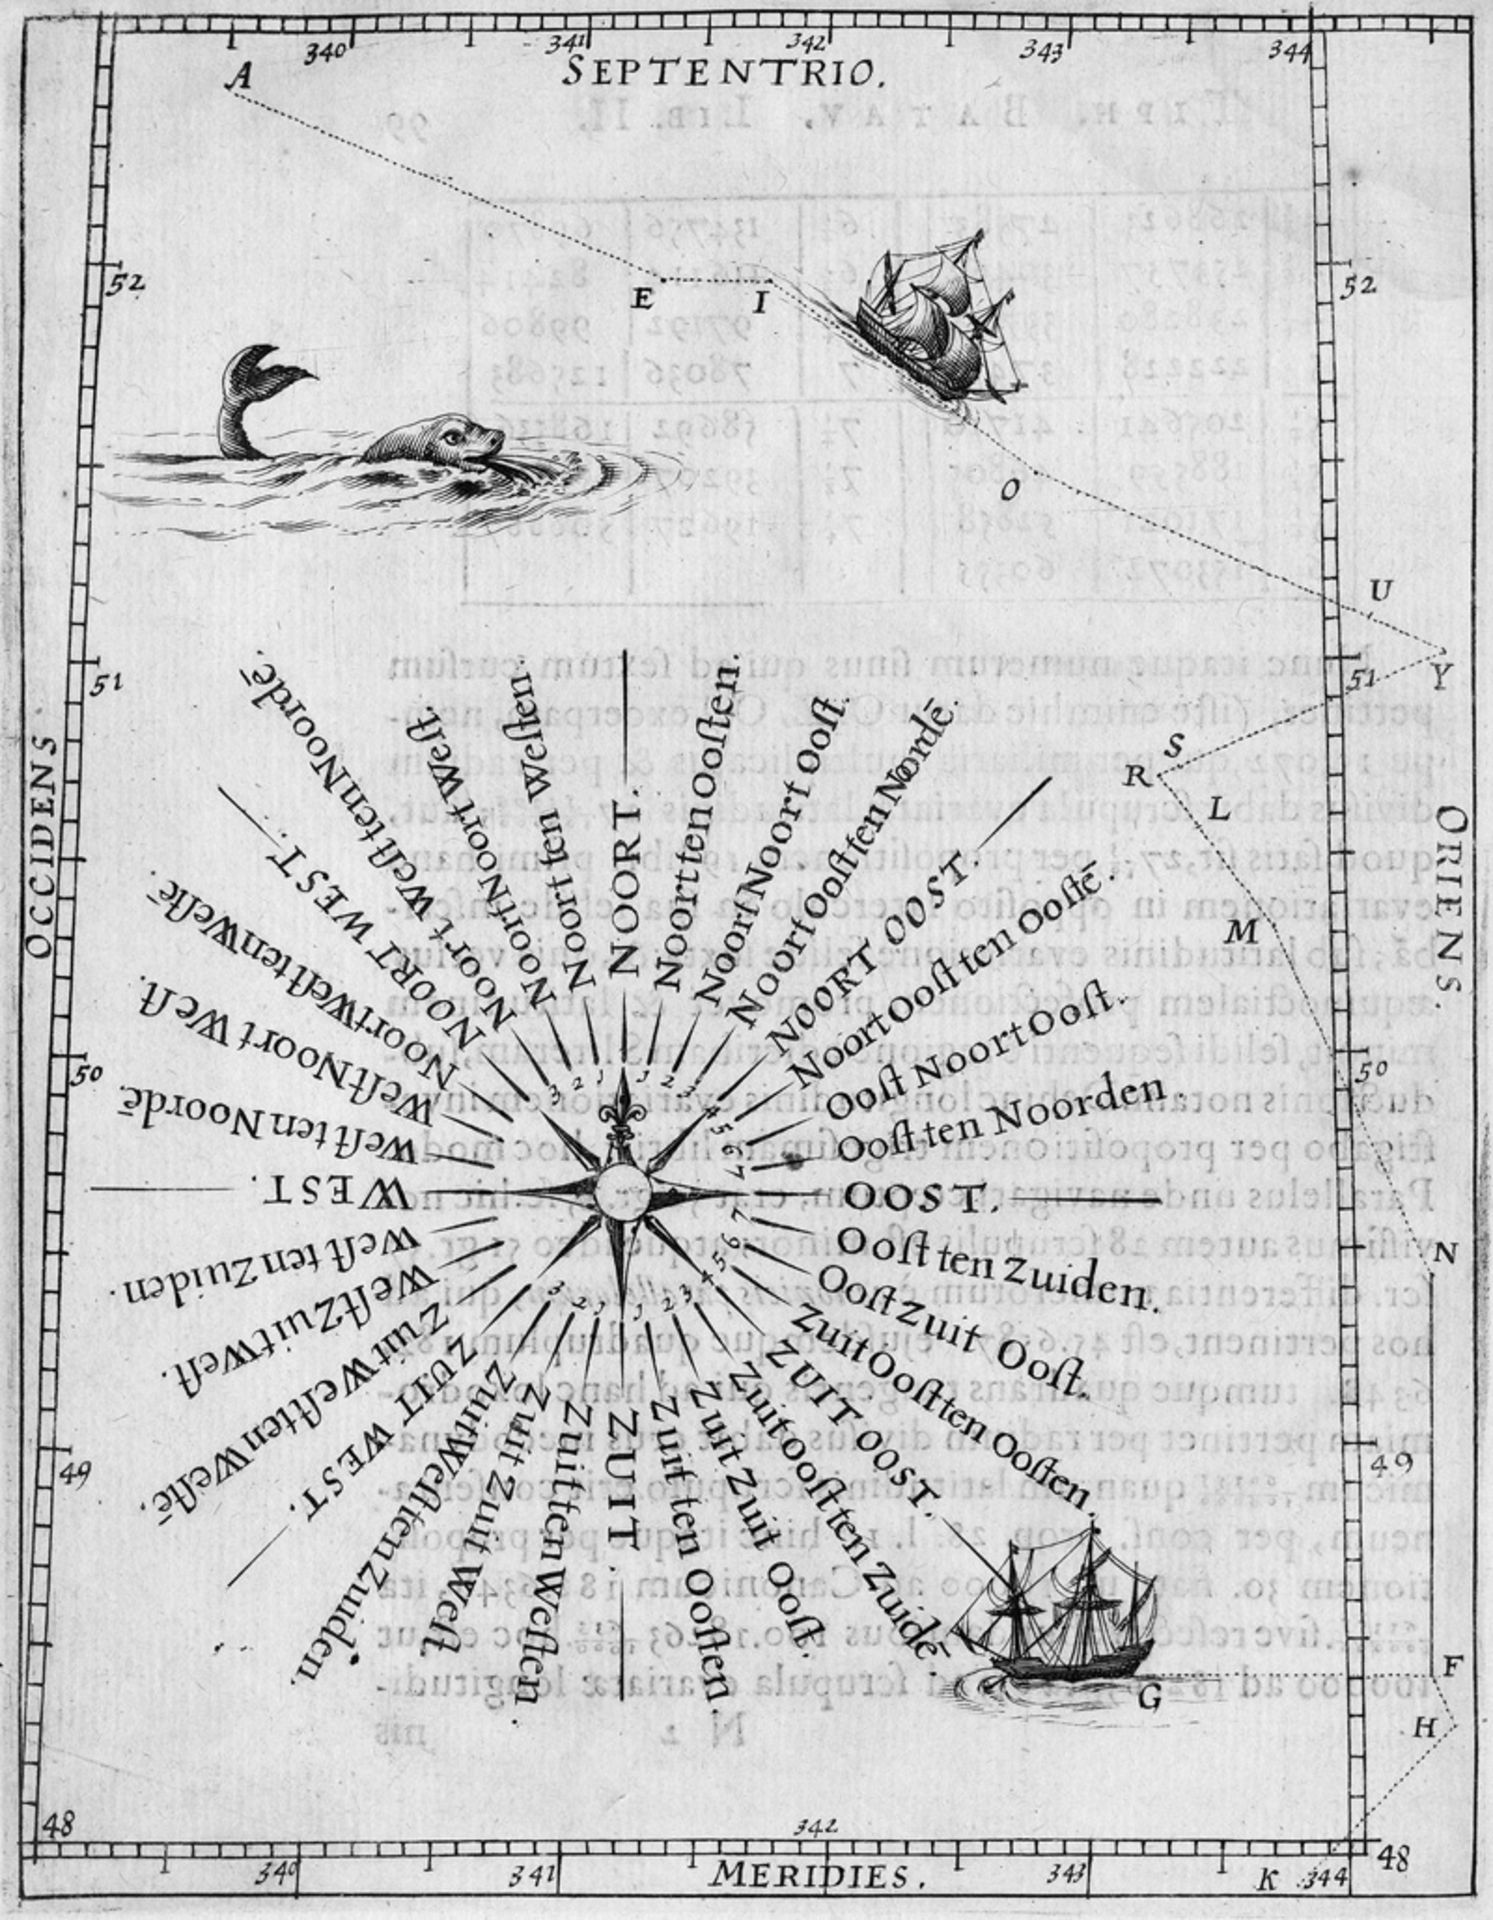 340 341 342 343 344
SEPTENTRIO.
A
52 E I 52
O
U
51 51 Y
S
R
L
M
OCCIDENS.
ORIENS.
NOORT.
Noort ten Ooſten.
Noort Noort Ooſt.
Noort Ooſt ten Noordē.
NOORT OOST.
Noort Ooſt ten Ooſtē.
Ooſt Noort Ooſt.
Ooſt ten Noorden.
OOST.
Ooſt ten Zuiden.
Ooſt Zuit Ooſt.
Zuit Ooſt ten Ooſten.
ZUIT OOST.
Zuit Ooſt ten Zuidē.
Zuit Zuit Ooſt.
Zuit ten Ooſten.
ZUIT.
Zuit ten Weſten.
Zuit Zuit Weſt.
Zuit Weſt ten Zuiden.
ZUIT WEST.
Zuit Weſt ten Weſtē.
Weſt Zuit Weſt.
Weſt ten Zuiden.
WEST.
Weſt ten Noordē.
Weſt Noort Weſt.
Noort Weſt ten Weſtē.
NOORT WEST.
Noort Weſt ten Noordē.
Noort Noort Weſt.
Noort ten Weſten.
3 2 1 1 2 3 4 5 6 7
7 6 5 4 3 2 1 1 2 3
50 50
N
49 49
F
G
H
48 342 48
340 341 MERIDIES. 343 K 344